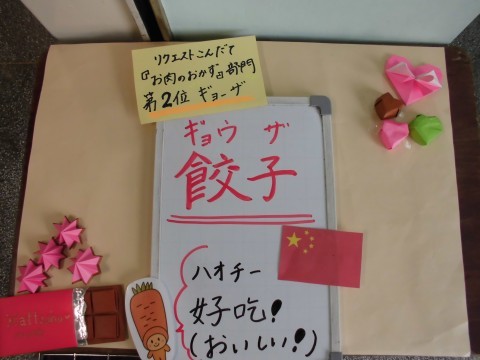 リクエストこんだて
『お肉のおかず』部門
第2位 ギョーザ
ギョウ ザ
餃子
ハオチー
好吃!
(おいしい!)